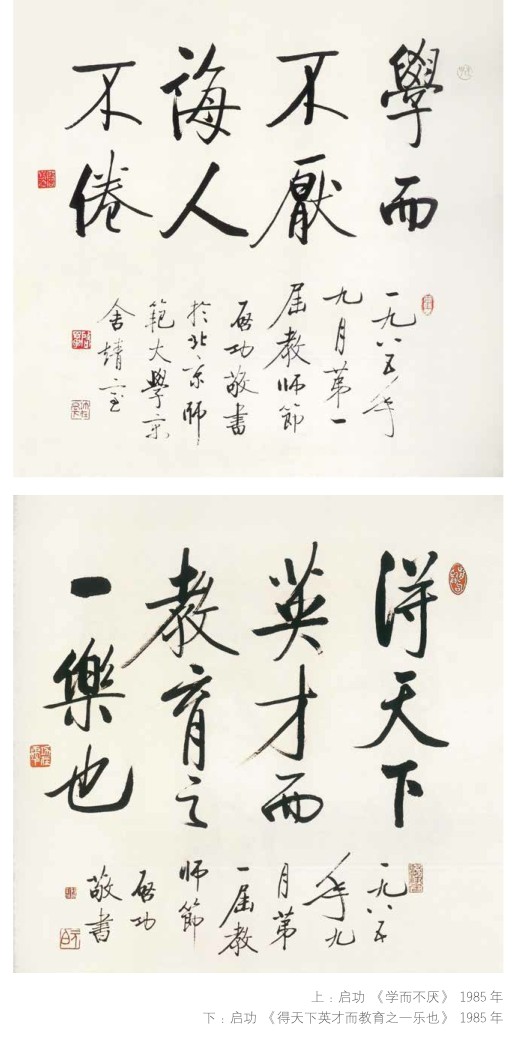 學而
不厭
誨人
不倦
一九八五年
九月第一
屆教師節
啟功敬書
於北京師
範大學京
舍靖安室
得天下
英才而
教育之
一樂也
一九八五
年九
月第
一屆教
師節
啟功
敬書
上：启功 《学而不厌》 1985 年
下：启功 《得天下英才而教育之一乐也》 1985 年